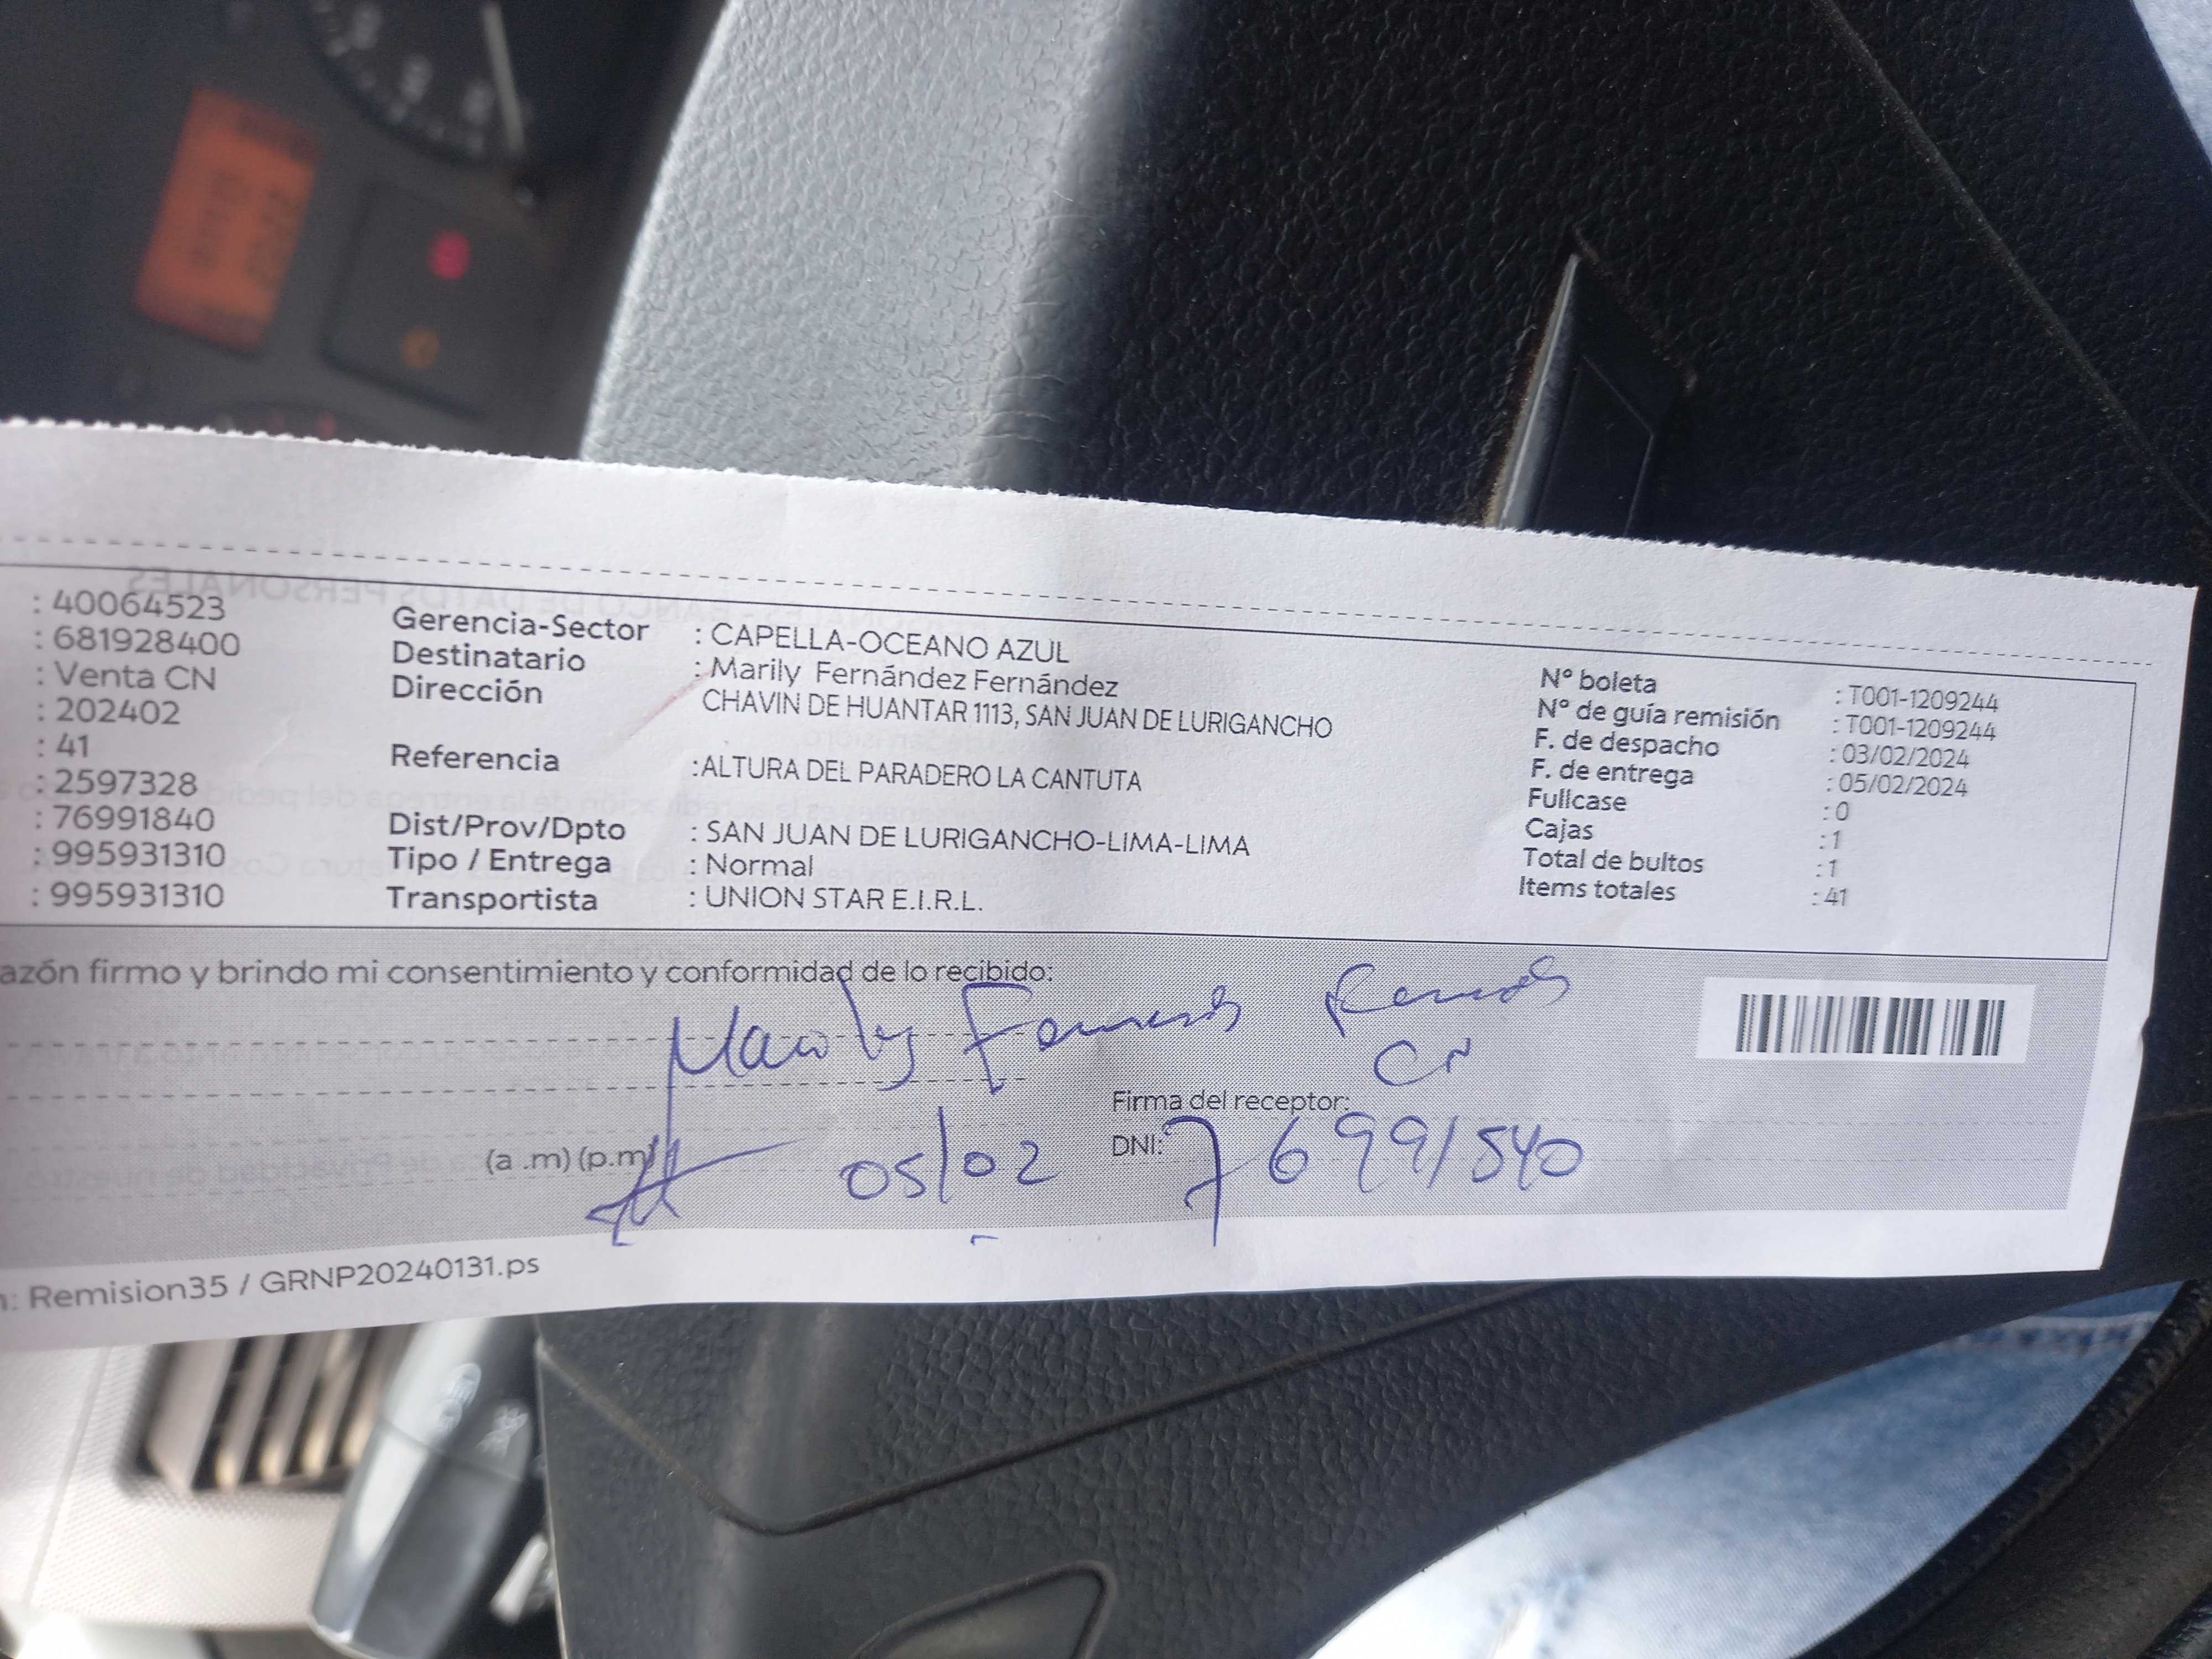 : 40064523
: 681928400
: Venta CN
: 202402
: 41
: 2597328
: 76991840
: 995931310
: 995931310
Gerencia-Sector : CAPELLA-OCEANO AZUL
Destinatario : Marily Fernández Fernández
Dirección CHAVIN DE HUANTAR 1113, SAN JUAN DE LURIGANCHO
Referencia :ALTURA DEL PARADERO LA CANTUTA
Dist/Prov/Dpto : SAN JUAN DE LURIGANCHO-LIMA-LIMA
Tipo / Entrega : Normal
Transportista : UNION STAR E.I.R.L.
N° boleta : T001-1209244
N° de guía remisión : T001-1209244
F. de despacho : 03/02/2024
F. de entrega : 05/02/2024
Fullcase : 0
Cajas : 1
Total de bultos : 1
Items totales : 41
azón firmo y brindo mi consentimiento y conformidad de lo recibido:
CN
Firma del receptor:
(a .m) (p.m) 05/02 DNI: 76991840
n: Remision35 / GRNP20240131.ps